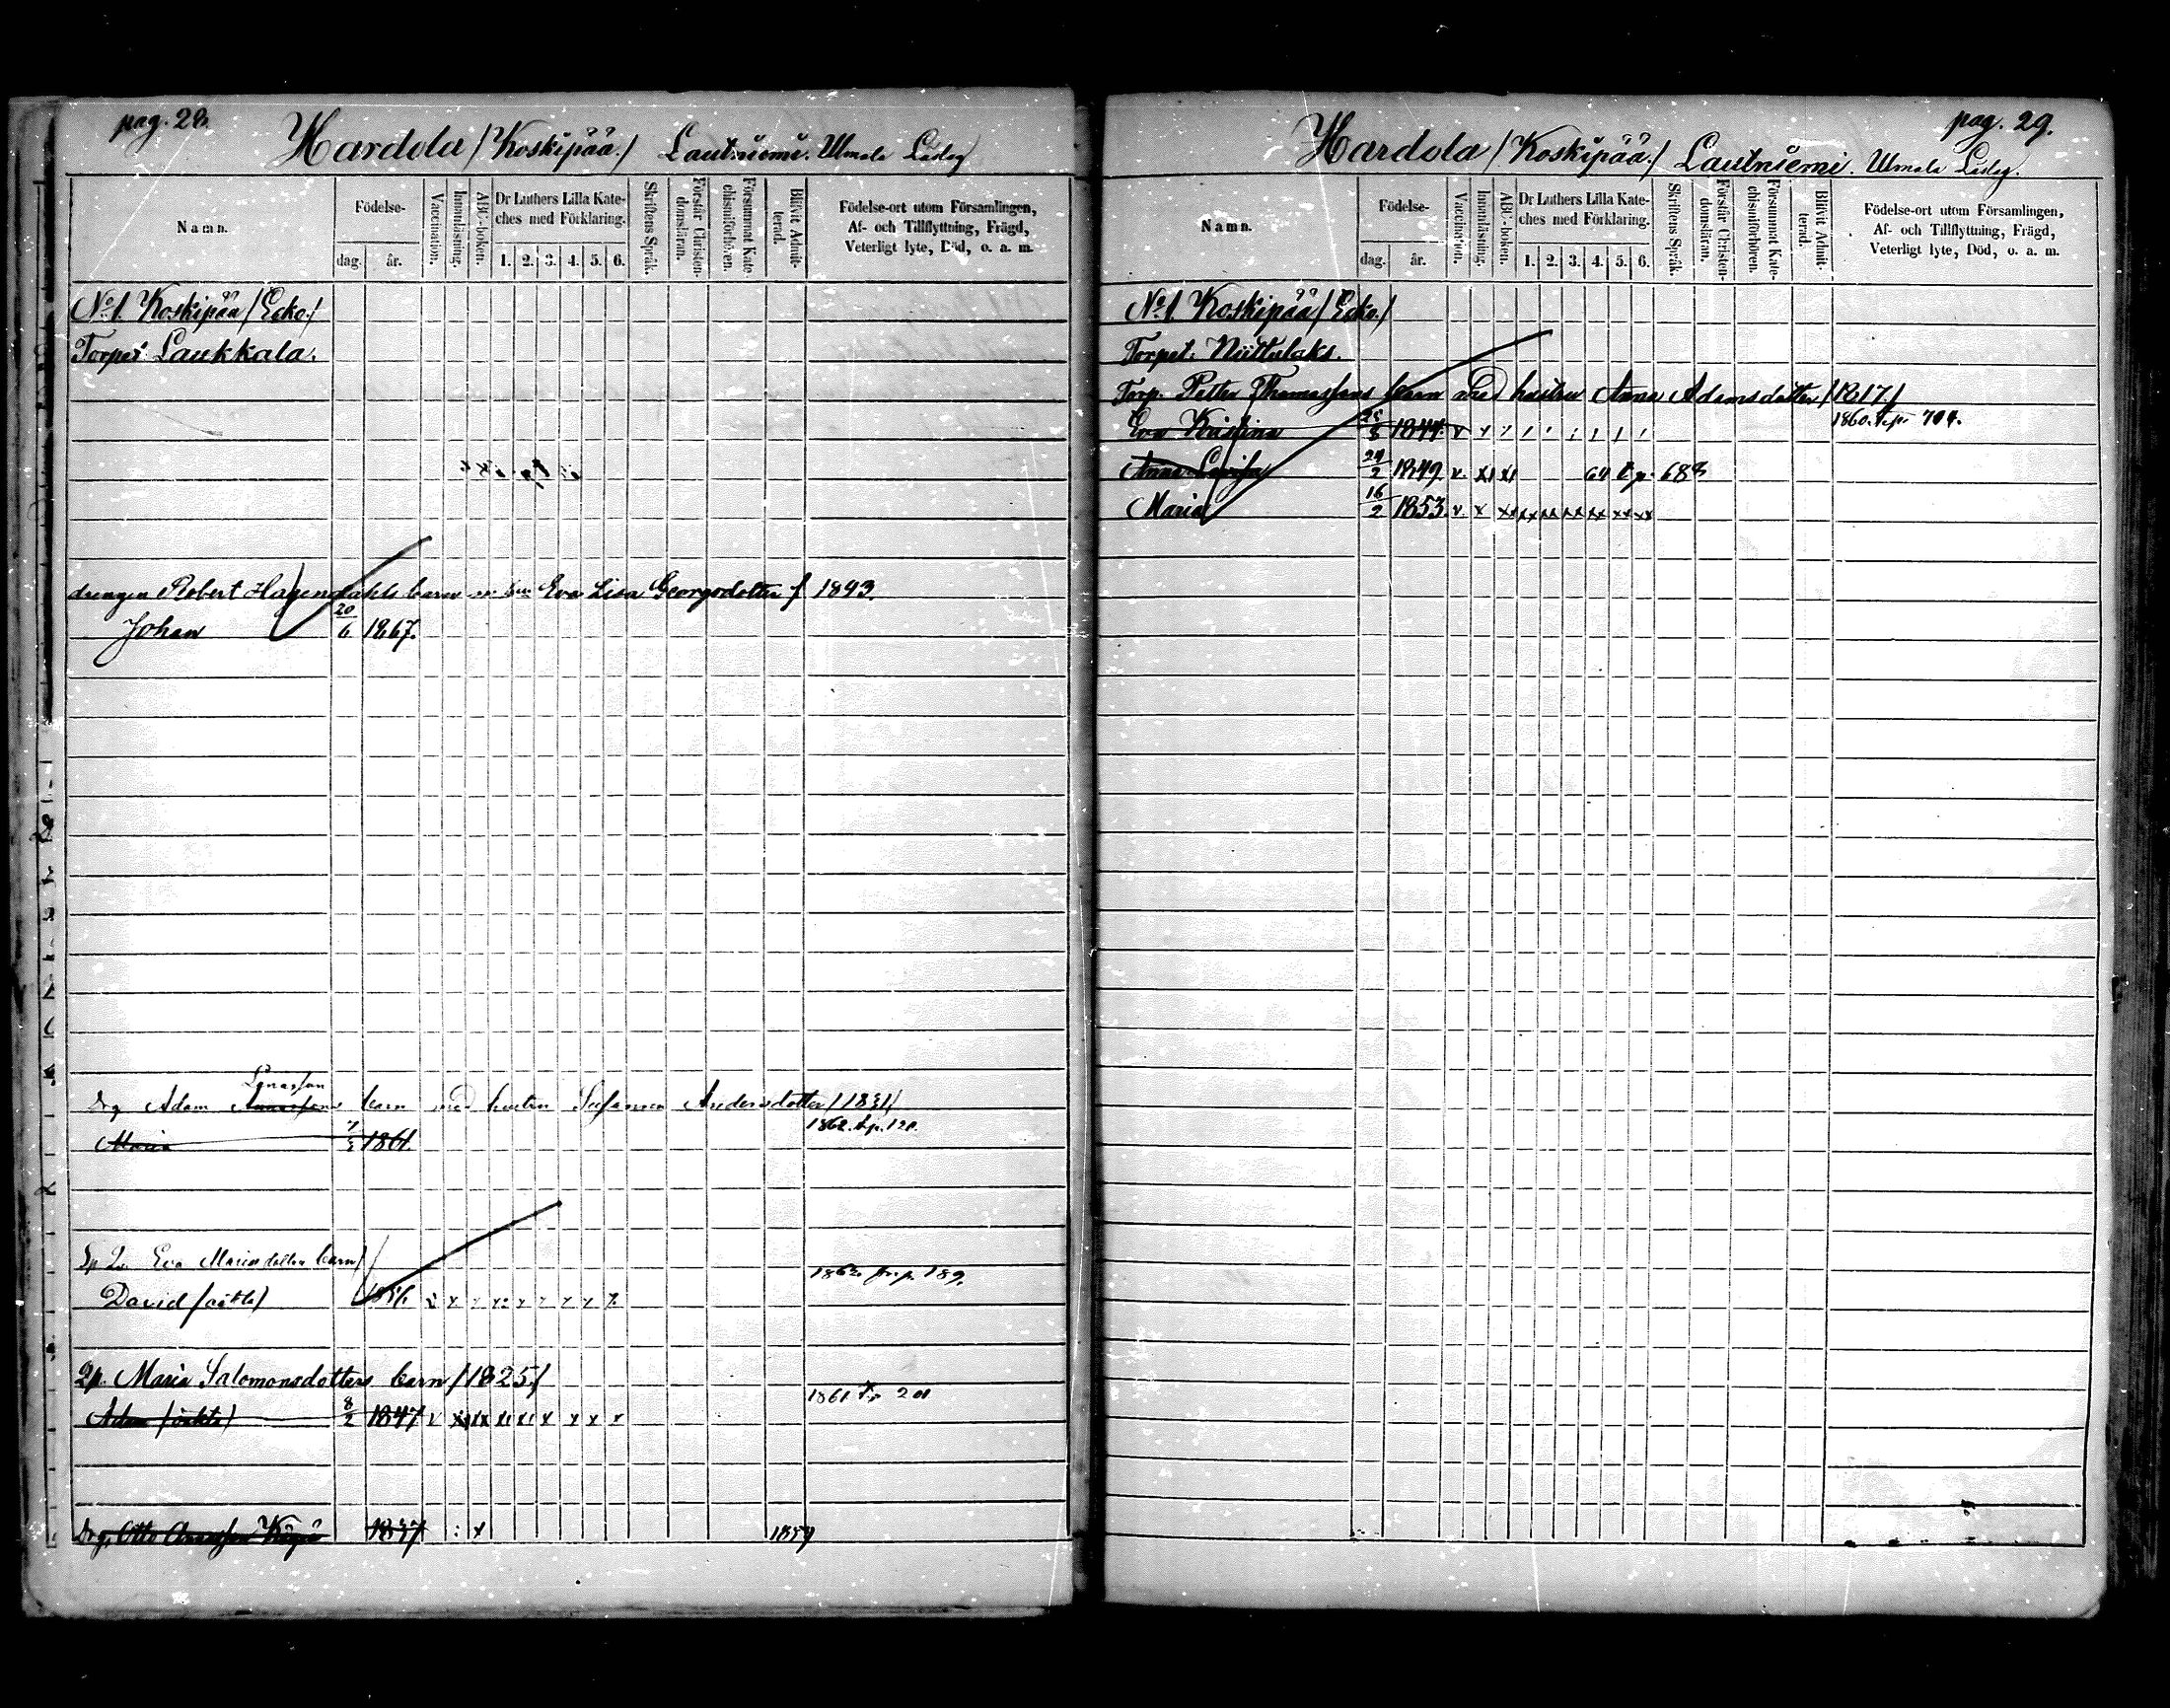 pag. 28.
Hardola /Koskipää./ Lautniemi.
Namn.
Födelse-
dag.
år.
Vaccination.
Innanläsning.
ABC-boken.
Dr Luthers Lilla Kate-
ches med Förklaring.
1. 2. 3. 4. 5. 6.
Skriftens Språk.
Förstår Christen-
domsläran.
Försummat Kate-
chismiförhören.
Blifvit Admit-
terad.
Födelse-ort utom Församlingen,
Af- och Tillflyttning, Frägd,
Veterligt lyte, Död, o. a. m.
No 1. Koskipää /Ecko./
Torpet Laukkala.
drengen Robert Hagendahls barn Eva Lisa Georgsdotter f 1843.
Johan 20/6 1867.
Drg Adam barn med hustru Andersdotter /1831/
Maria 1861. 1862. t.p. 120.
Eva Mariasdotter barn/
David /oäkta/ 1862 fr. p. 189.
Qp. Maria Salomonsdotters barn /1825/
Adam /oäkta/ 8/2 1847 v 1861 t.p 201
Drg. Otto 1837 x
pag. 29.
Hardola /Koskipää./ Lautniemi.
Namn.
Födelse-
dag.
år.
Vaccination.
Innanläsning.
ABC-boken.
Dr Luthers Lilla Kate-
ches med Förklaring.
1. 2. 3. 4. 5. 6.
Skriftens Språk.
Förstår Christen-
domsläran.
Försummat Kate-
chismiförhören.
Blifvit Admit-
terad.
Födelse-ort utom Församlingen,
Af- och Tillflyttning, Frägd,
Veterligt lyte, Död, o. a. m.
No 1 Koskipää /Ecko./
Torpet. Niittulaks.
Torp. Petter Thomassons barn med hustru Anna Adamsdotter /1817/
Eva Kristina 1844. 1860. t.p. 704.
Anna Lovisa 24/2 1849. v. 64 t p. 688
Maria 16/2 1853. v. x